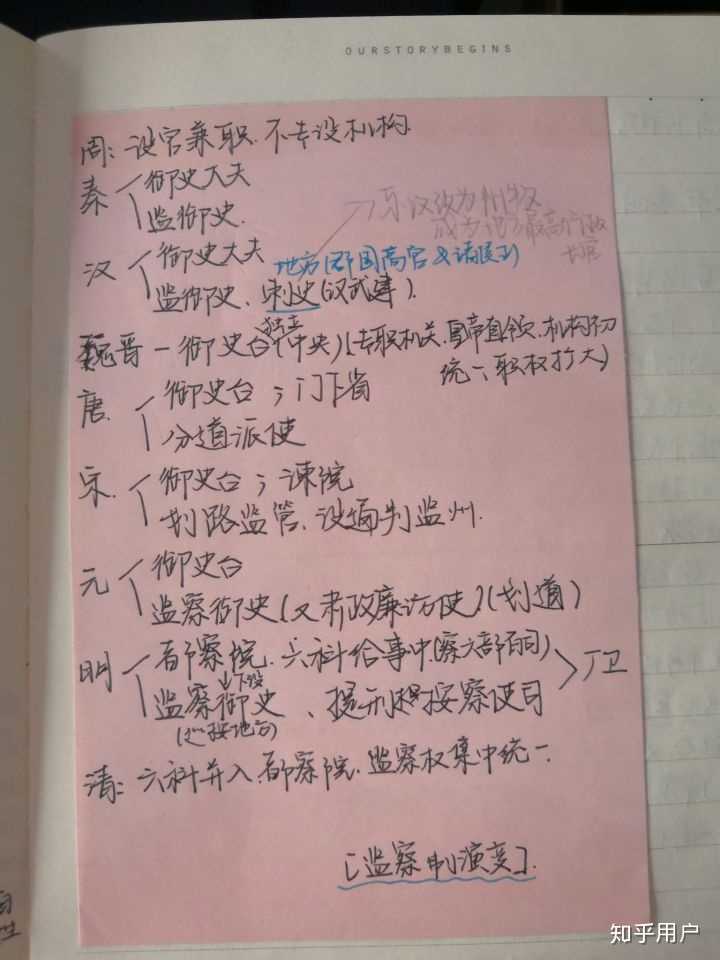 OURSTORYBEGINS
周：设官兼职.不专设机构.
秦 御史大夫
监御史.
→东汉改为州牧
成为地方最高行政
长官
汉 御史大夫
地方(郡国高官及诸侯王)
监御史、刺史(汉武建).
独立
魏晋-御史台(中央)(专职机关.皇帝直领.机构初
统一、职权扩大)
唐. 御史台；门下省
分道派使
宋. 御史台；谏院
划路监管、设通判监州.
元 御史台
监察御史(又肃政廉访使)(划道)
明 都察院.六科给事中.(察六部百司)
↓下设
监察御史、提刑按察使司 >厂卫
(巡按地方)
清：六科并入.都察院.监察权集中统一.
[监察制演变].
知乎用户